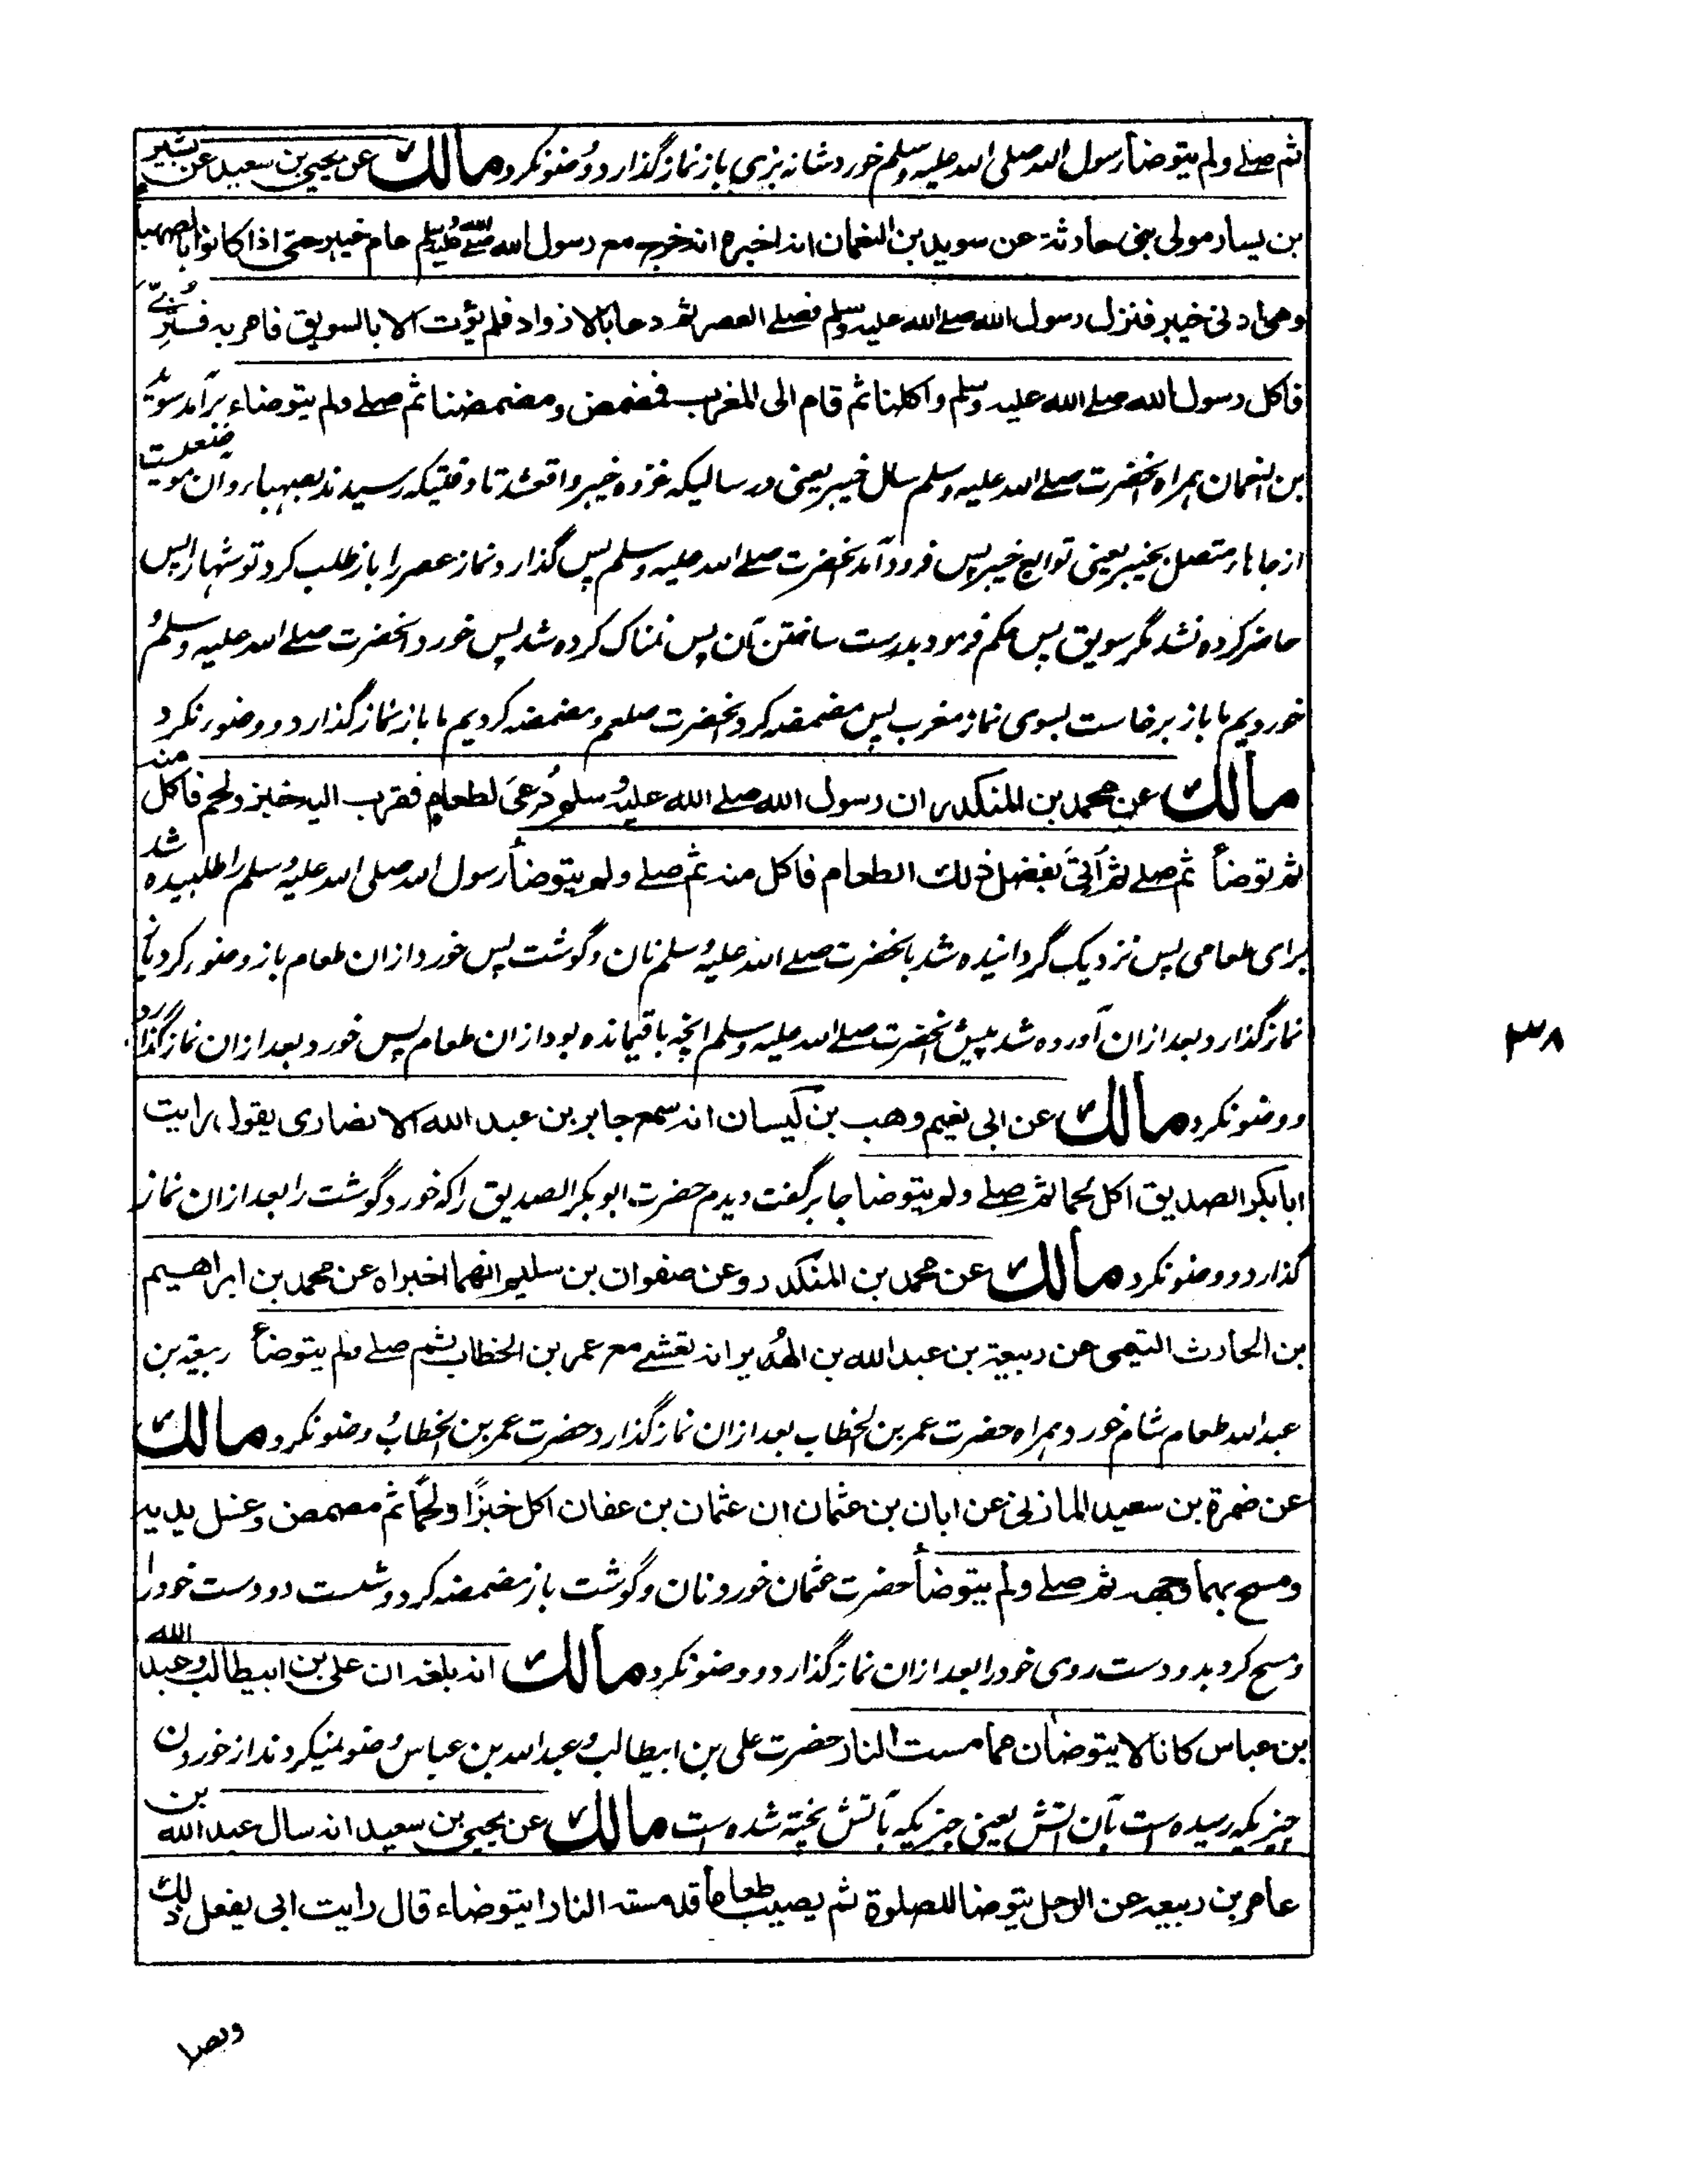 ثم صلے ولم يتوضأ رسول الله صلی الله علیہ وسلم خورد شانہ بزی باز نماز گذارد و وضو نکرد مالك عن يحيى بن سعيد عن بشير
بن يسار مولى بنى حارثة عن سويد بن النعمان انه اخبره انه خرج مع رسول الله صلے الله عليه وسلم عام خيبر حتى اذا كانوا بالصهبا
وهى ادنى خيبر فنزل رسول الله صلے الله عليه وسلم فصلے العصر ثم دعا بالازواد فلم يؤت الا بالسويق فامر به فثرّي
فاكل رسول الله صلے الله عليه وسلم واكلنا ثم قام الى المغرب فمضمض ومضمضنا ثم صلے ولم يتوضاء برآمد سويد
بن النعمان ہمراہ آنحضرت صلے اللہ علیہ وسلم سال خیبر یعنی در سالیکہ غزوہ خیبر واقع شد تا وقتیکہ رسیدند بصہباء و آن موضعیست
از جاہاء متصل بخیبر یعنی توابع خیبر پس فرود آمد آنحضرت صلے اللہ علیہ وسلم پس گذارد نماز عصر را باز طلب کرد توشہا را پس
حاضر کردہ نشد مگر سویق پس حکم فرمود بدرست ساختن آن پس نمناک کردہ شد پس خورد آنحضرت صلے اللہ علیہ وسلم و
خوردیم ما باز برخاست بسوی نماز مغرب پس مضمضہ کرد آنحضرت صلعم و مضمضہ کردیم ما باز نماز گذارد و وضو نکرد
مالك عن محمد بن المنكدر ان رسول الله صلے الله عليه وسلم دُعىَ لطعام فقرب اليه خبز ولحم فاكل منه
ثم توضأ ثم صلے ثم اُتىَ بفضل ذلك الطعام فاكل منه ثم صلے ولم يتوضأ رسول اللہ صلی اللہ علیہ وسلم را طلبیدہ شد
برای طعامی پس نزدیک گردانیدہ شد بآنحضرت صلے اللہ علیہ وسلم نان و گوشت پس خورد ازان طعام باز وضو کرد باز
نماز گذارد بعد ازان آوردہ شد پیش آنحضرت صلے اللہ علیہ وسلم آنچہ باقیماندہ بود ازان طعام پس خورد بعد ازان نماز گذارد
و وضو نکرد مالك عن ابى نعيم وهب بن كيسان انه سمع جابر بن عبد الله الانصارى يقول رايت
ابا بكر الصديق اكل لحما ثم صلے ولم يتوضا جابر گفت دیدم حضرت ابو بکر الصدیق را کہ خورد گوشت را بعد ازان نماز
گذارد و وضو نکرد مالك عن محمد بن المنكدر وعن صفوان بن سليم انهما اخبراه عن محمد بن ابراهيم
بن الحارث التيمى عن ربيعة بن عبد الله بن الهُدير انه تعشے مع عمر بن الخطاب ثم صلے ولم يتوضأ ربیعہ بن
عبد اللہ طعام شام خورد ہمراہ حضرت عمر بن الخطاب بعد ازان نماز گذارد حضرت عمر بن الخطاب و وضو نکرد مالك
عن ضمرة بن سعيد المازنى عن ابان بن عثمان ان عثمان بن عفان اكل خبزًا ولحمًا ثم مصمص وغسل يديه
ومسح بهما وجهه ثم صلے ولم يتوضأ حضرت عثمان خورد نان و گوشت باز مضمضہ کرد و شست دو دست خود را
و مسح کرد بدو دست روی خود را بعد ازان نماز گذارد و وضو نکرد مالك انه بلغه ان على بن ابيطالب وعبد الله
بن عباس كانا لا يتوضأن مما مست النار حضرت علی بن ابیطالب و عبد اللہ بن عباس وضو نمیکردند از خوردن
چیزیکہ رسیدہ است بآن آتش یعنی چیزیکہ بآتش پختہ شدہ است مالك عن يحيى بن سعيد انه سال عبد الله بن
عامر بن ربيعه عن الرجل يتوضا للصلوة ثم يصيب طعاما قد مسته النار ايتوضاء قال رايت ابى يفعل ذلك
۳۸